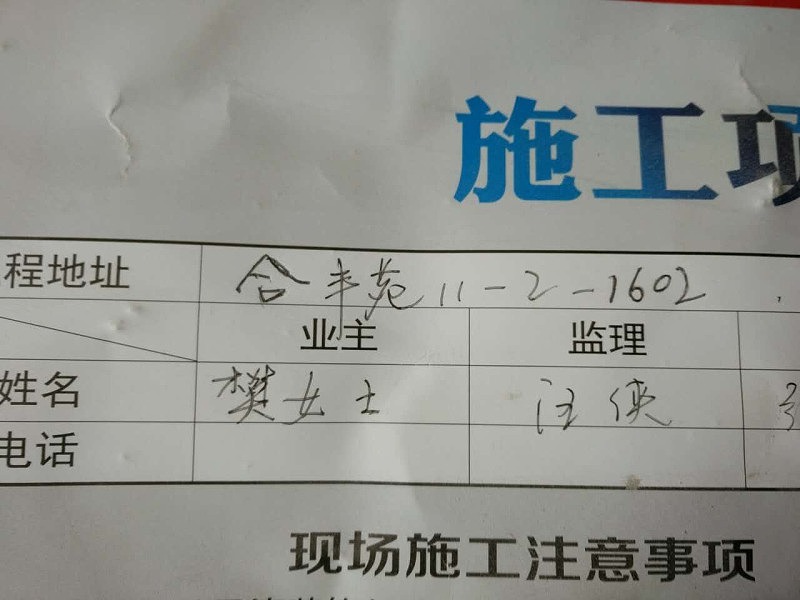 施工项
程地址 合丰苑 11-2-1602
业主 监理
姓名 樊女士 汪侠
电话
现场施工注意事项